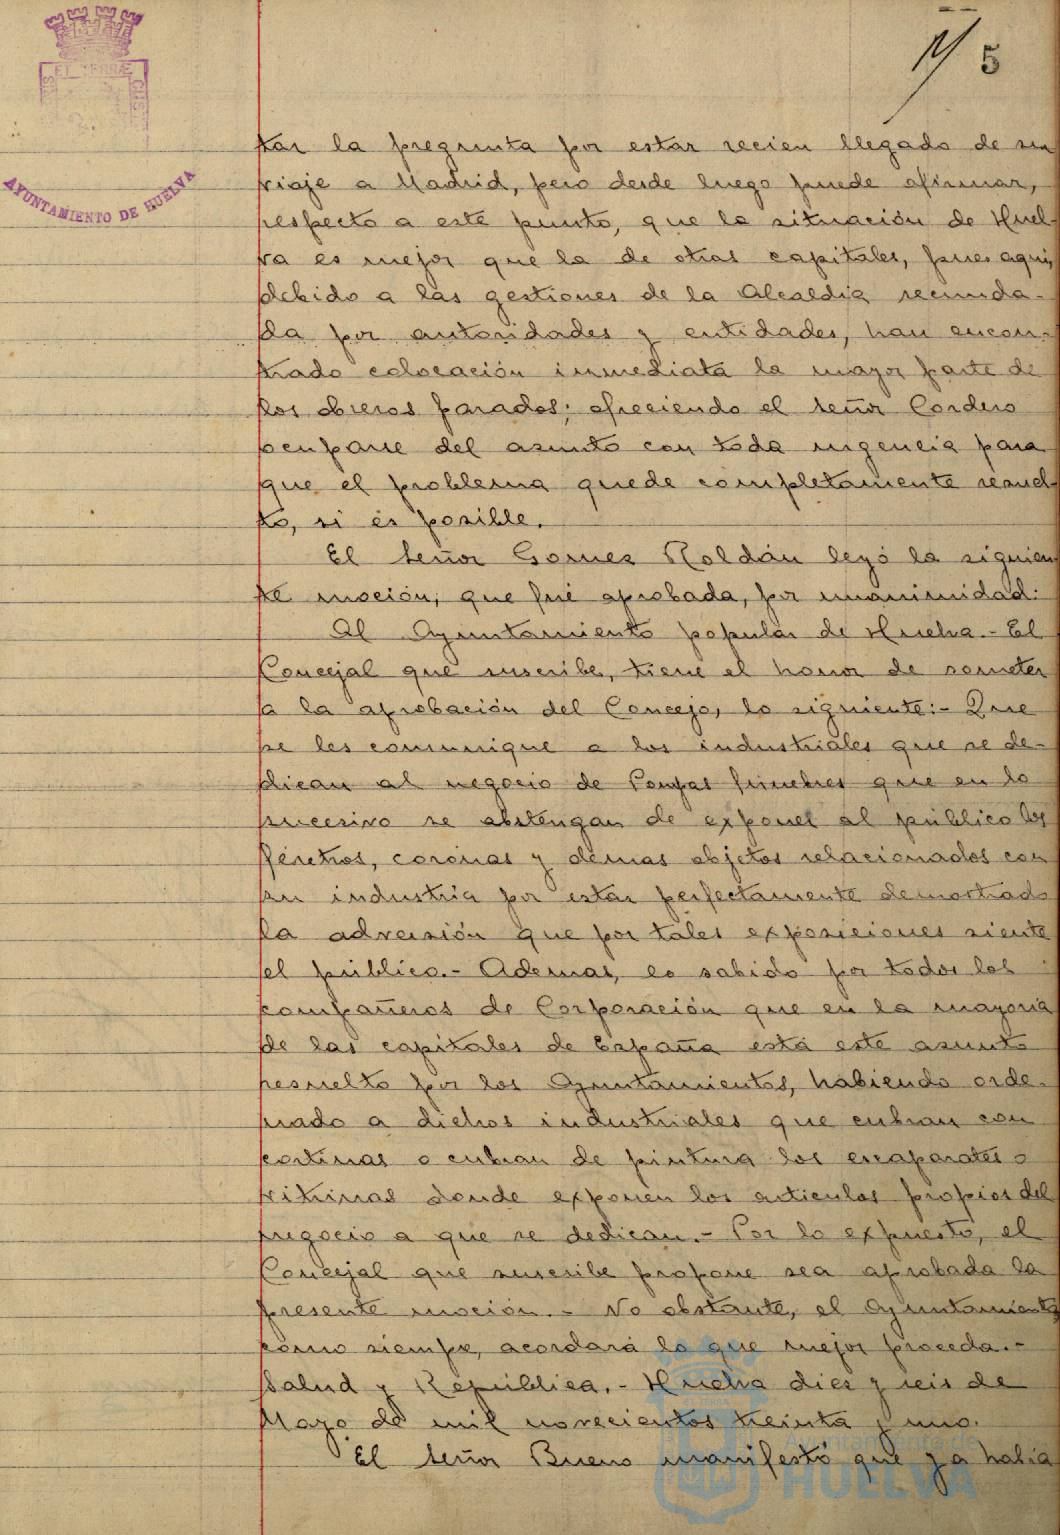 5
ET TERRÆ
AYUNTAMIENTO DE HUELVA
tar la pregunta por estar recien llegado de su
viaje a Madrid, pero desde luego puede afirmar,
respecto a este punto, que la situación de Huel-
va es mejor que la de otras capitales, pues aqui,
debido a las gestiones de la Alcaldia secunda-
da por autoridades y entidades, han encon-
trado colocación inmediata la mayor parte de
los obreros parados; ofreciendo el señor Cordero
ocuparse del asunto con toda urgencia para
que el problema quede completamente resuel-
to, si es posible.
El Señor Gomez Roldán leyó la siguien
te moción, que fué aprobada, por unanimidad:
Al Ayuntamiento popular de Huelva.- El
Concejal que suscribe, tiene el honor de someter
a la aprobación del Concejo, lo siguiente:- Que
se les comunique a los industriales que se de-
dican al negocio de Pompas fúnebres que en lo
sucesivo se abstengan de exponer al público los
féretros, coronas y demas objetos relacionados con
su industria por estar perfectamente demostrado
la adversión que por tales exposiciones siente
el público.- Ademas, es sabido por todos los
compañeros de Corporación que en la mayoria
de las capitales de España está este asunto
resuelto por los Ayuntamientos, habiendo orde-
nado a dichos industriales que cubran con
cortinas o cubran de pintura los escaparates o
vitrinas donde exponen los articulos propios del
negocio a que se dedican.- Por lo expuesto, el
Concejal que suscribe propone sea aprobada la
presente moción.- No obstante, el Ayuntamiento
como siempre, acordará lo que mejor proceda.-
Salud y República.- Huelva diez y seis de
Mayo de mil novecientos treinta y uno.
El Señor Bueno manifestó que ya habia
Ayuntamiento de
HUELVA